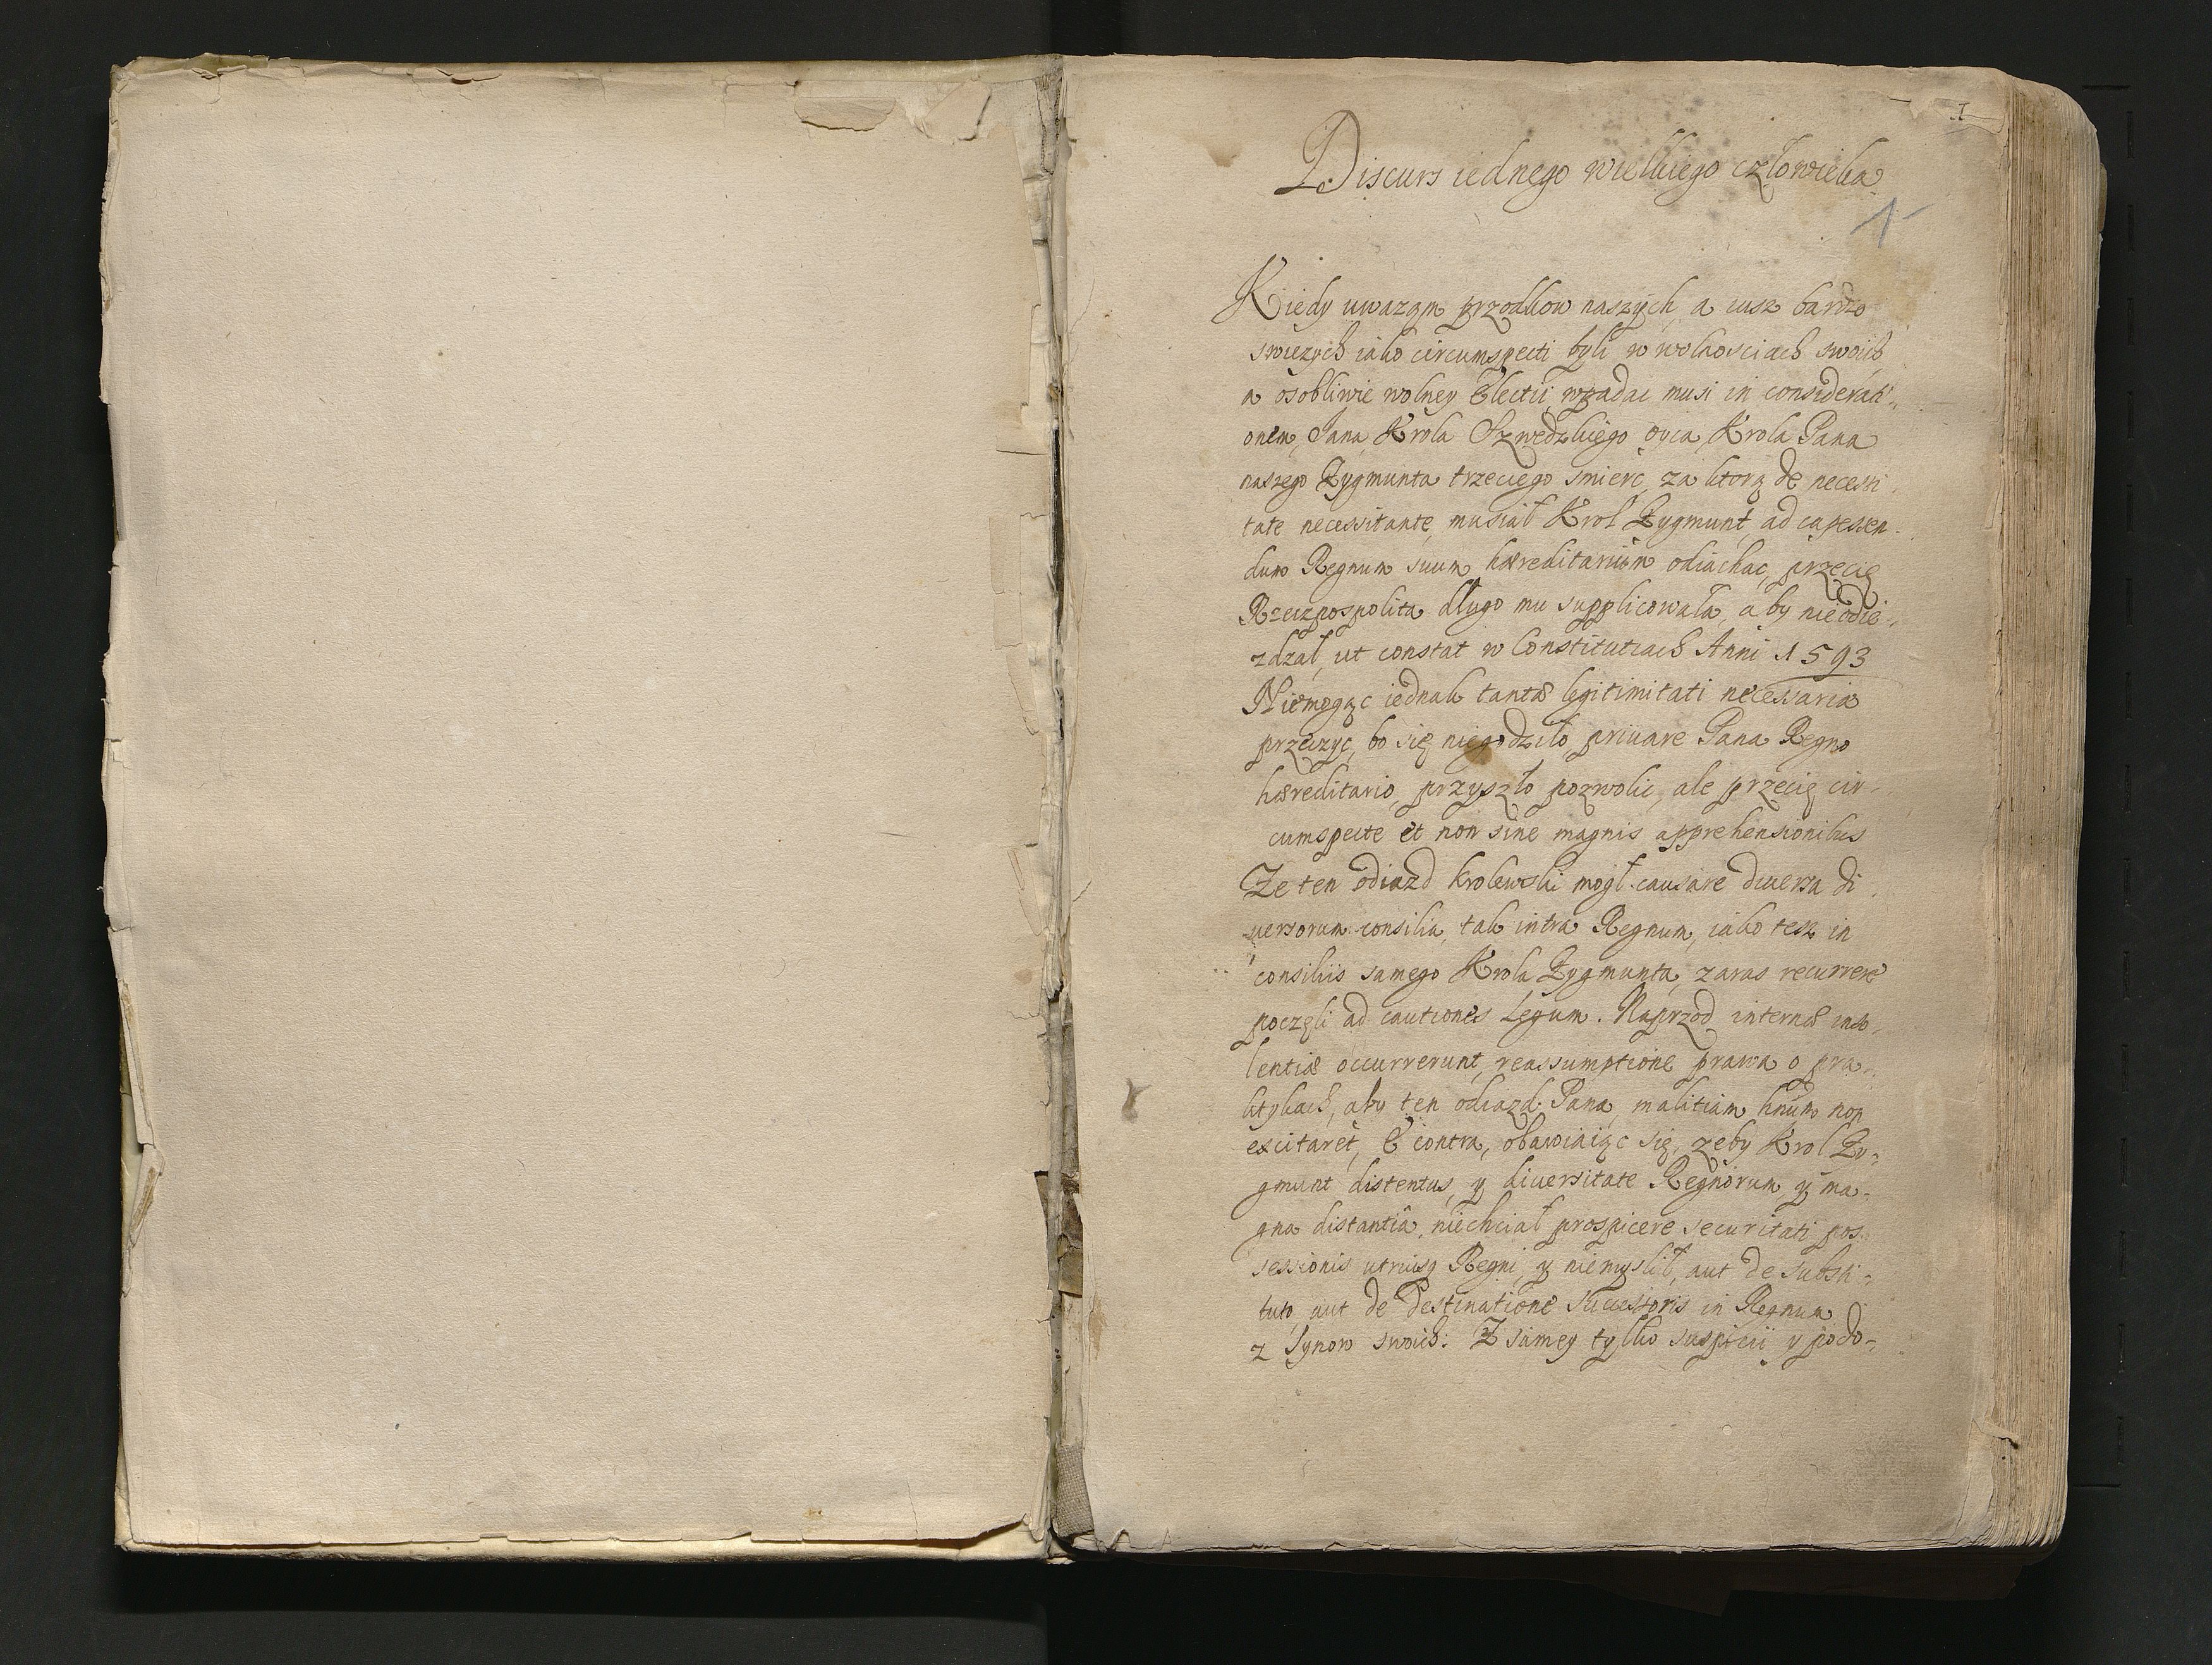 1
Discurs iednego wielkiego człowieka
1
Kiedy uwazam przodkow naszych, a iusz bardzo
swiezych iako circumspecti byli w wolnosciach swoich
a osobliwie wolney Electii, wpadac musi in considerati„
onem, Jana Krola Szwedzkiego oyca Krola Pana
naszego Zygmunta trzeciego smierc, za ktorą de necessi„
tate necessitante, musiał Krol Zygmunt, ad capessen„
dum Regnum suum hæreditarium odiachac, przecię
Rzeczpospolita długo mu supplicowała, aby nieodie„
zdzał, ut constat w Constitutiach Anni 1593
Niemogąc iednak tantæ legitimitati necessaria
przeczyc, bo się niegodziło priuare Pana Regno
hæreditario, przyszło pozwolic, ale przecię cir„
cumspecte et non sine magnis apprehensionibus
Ze ten odiazd krolewski mogł causare diuersa di„
uersorum consilia, tak intra Regnum, iako tesz in
consiliis samego Krola Zygmunta, zaras recurrere
poczęli ad cautiones Legum. Naprzod internæ inso„
lentiæ occurrerunt, reassumptione prawa o pra„
ktykach, aby ten odiazd Pana, malitiam hnum non
excitaret, E contra, obawiaiąc się, zeby Krol Zy„
gmunt distentus, y diuersitate Regnorum y ma„
gna distantiâ, niechciał prospicere securitati pos„
sessionis utriusq Regni, y niemyslił, aut de substi„
tuto, aut de destinatione successoris in Regnum
z Synow swoich: Z samey tylko suspicii y podo„